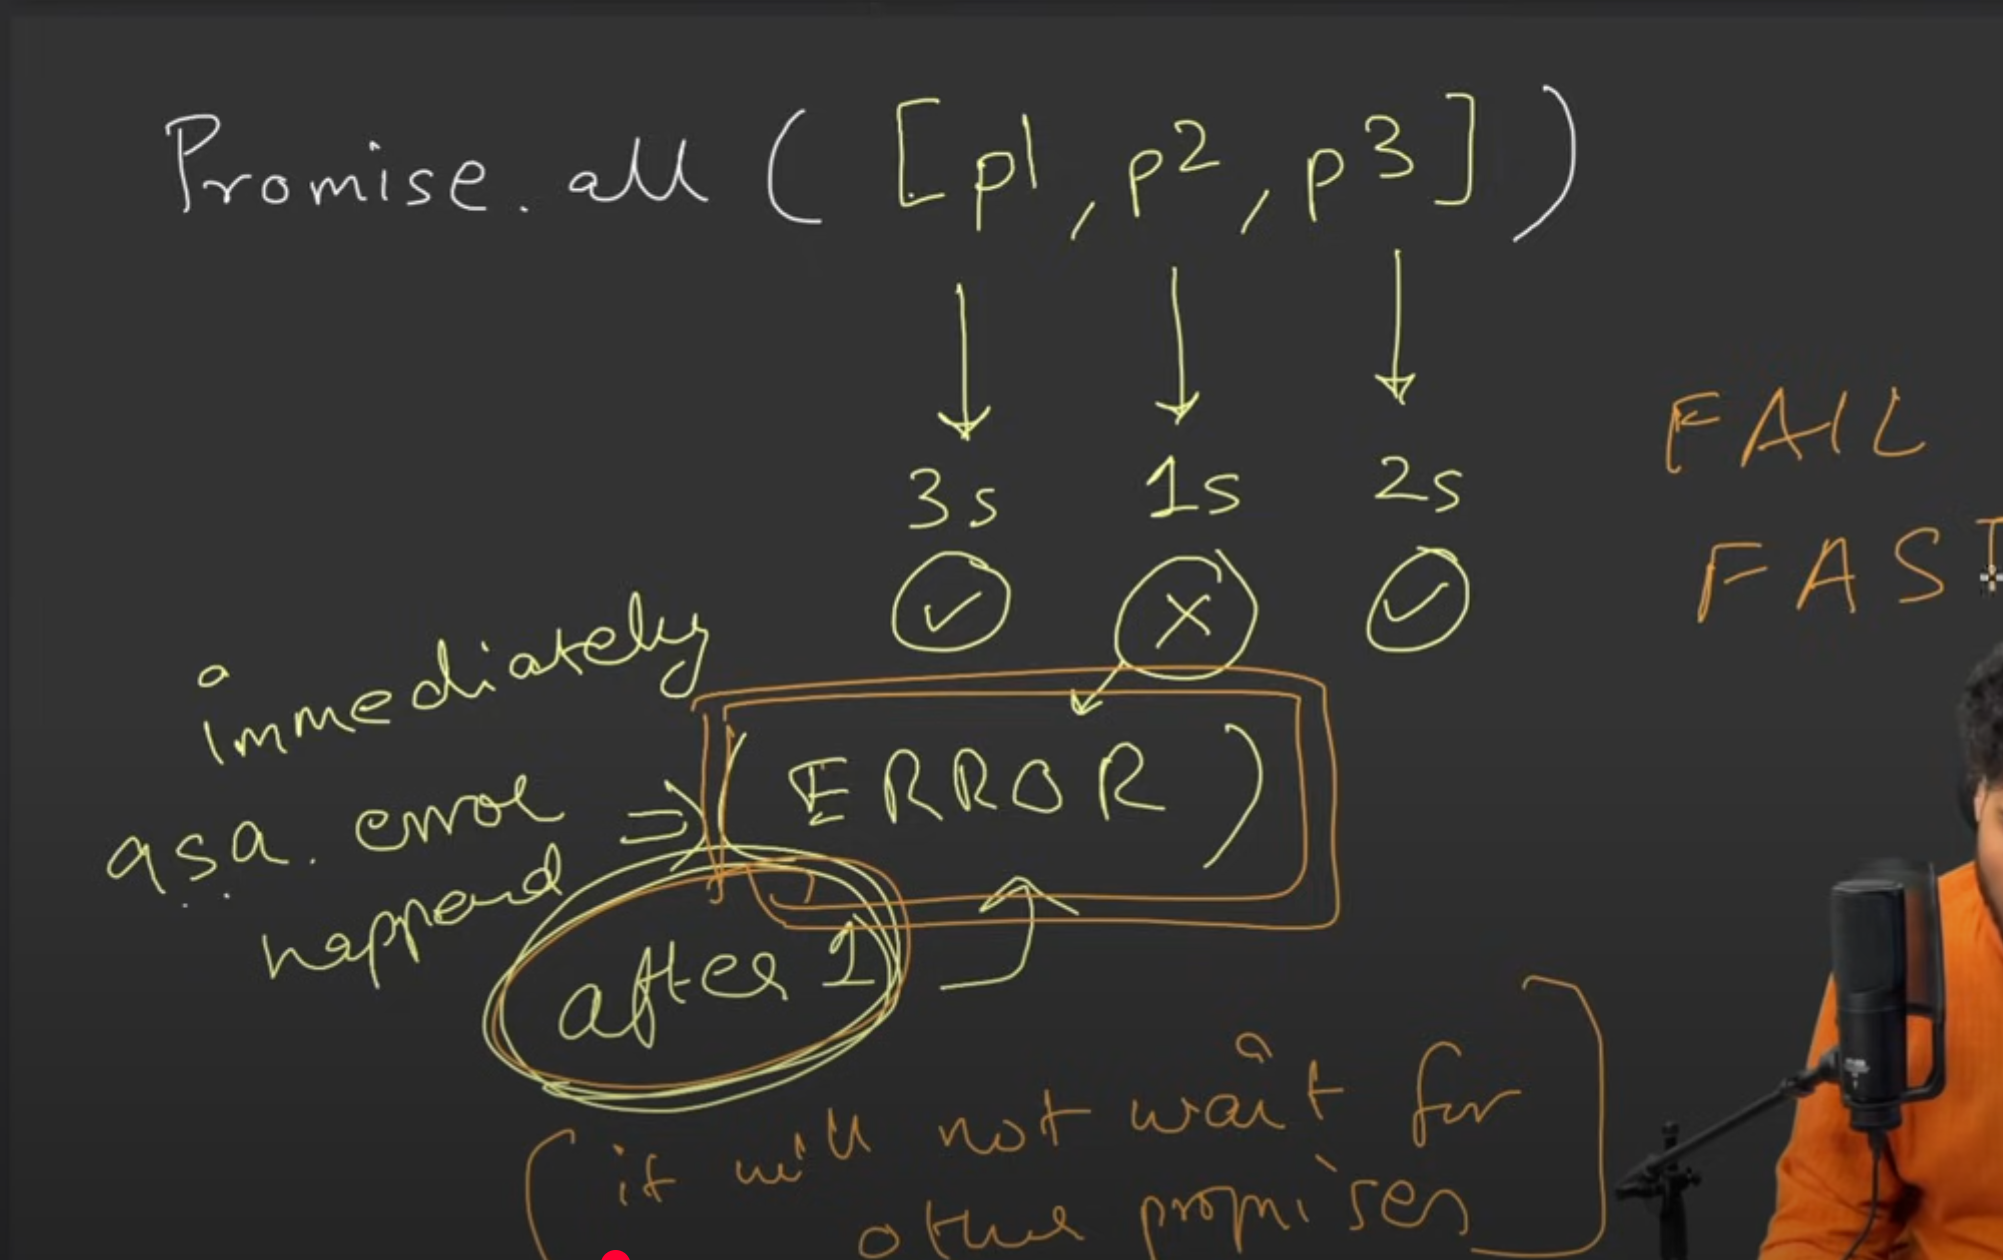 Promise.all ( [p1, p2, p3] )
3s 1s 2s
FAIL
FAST
immediately
asa. error
happend
=> (ERROR)
after 1
(it will not wait for
other promises